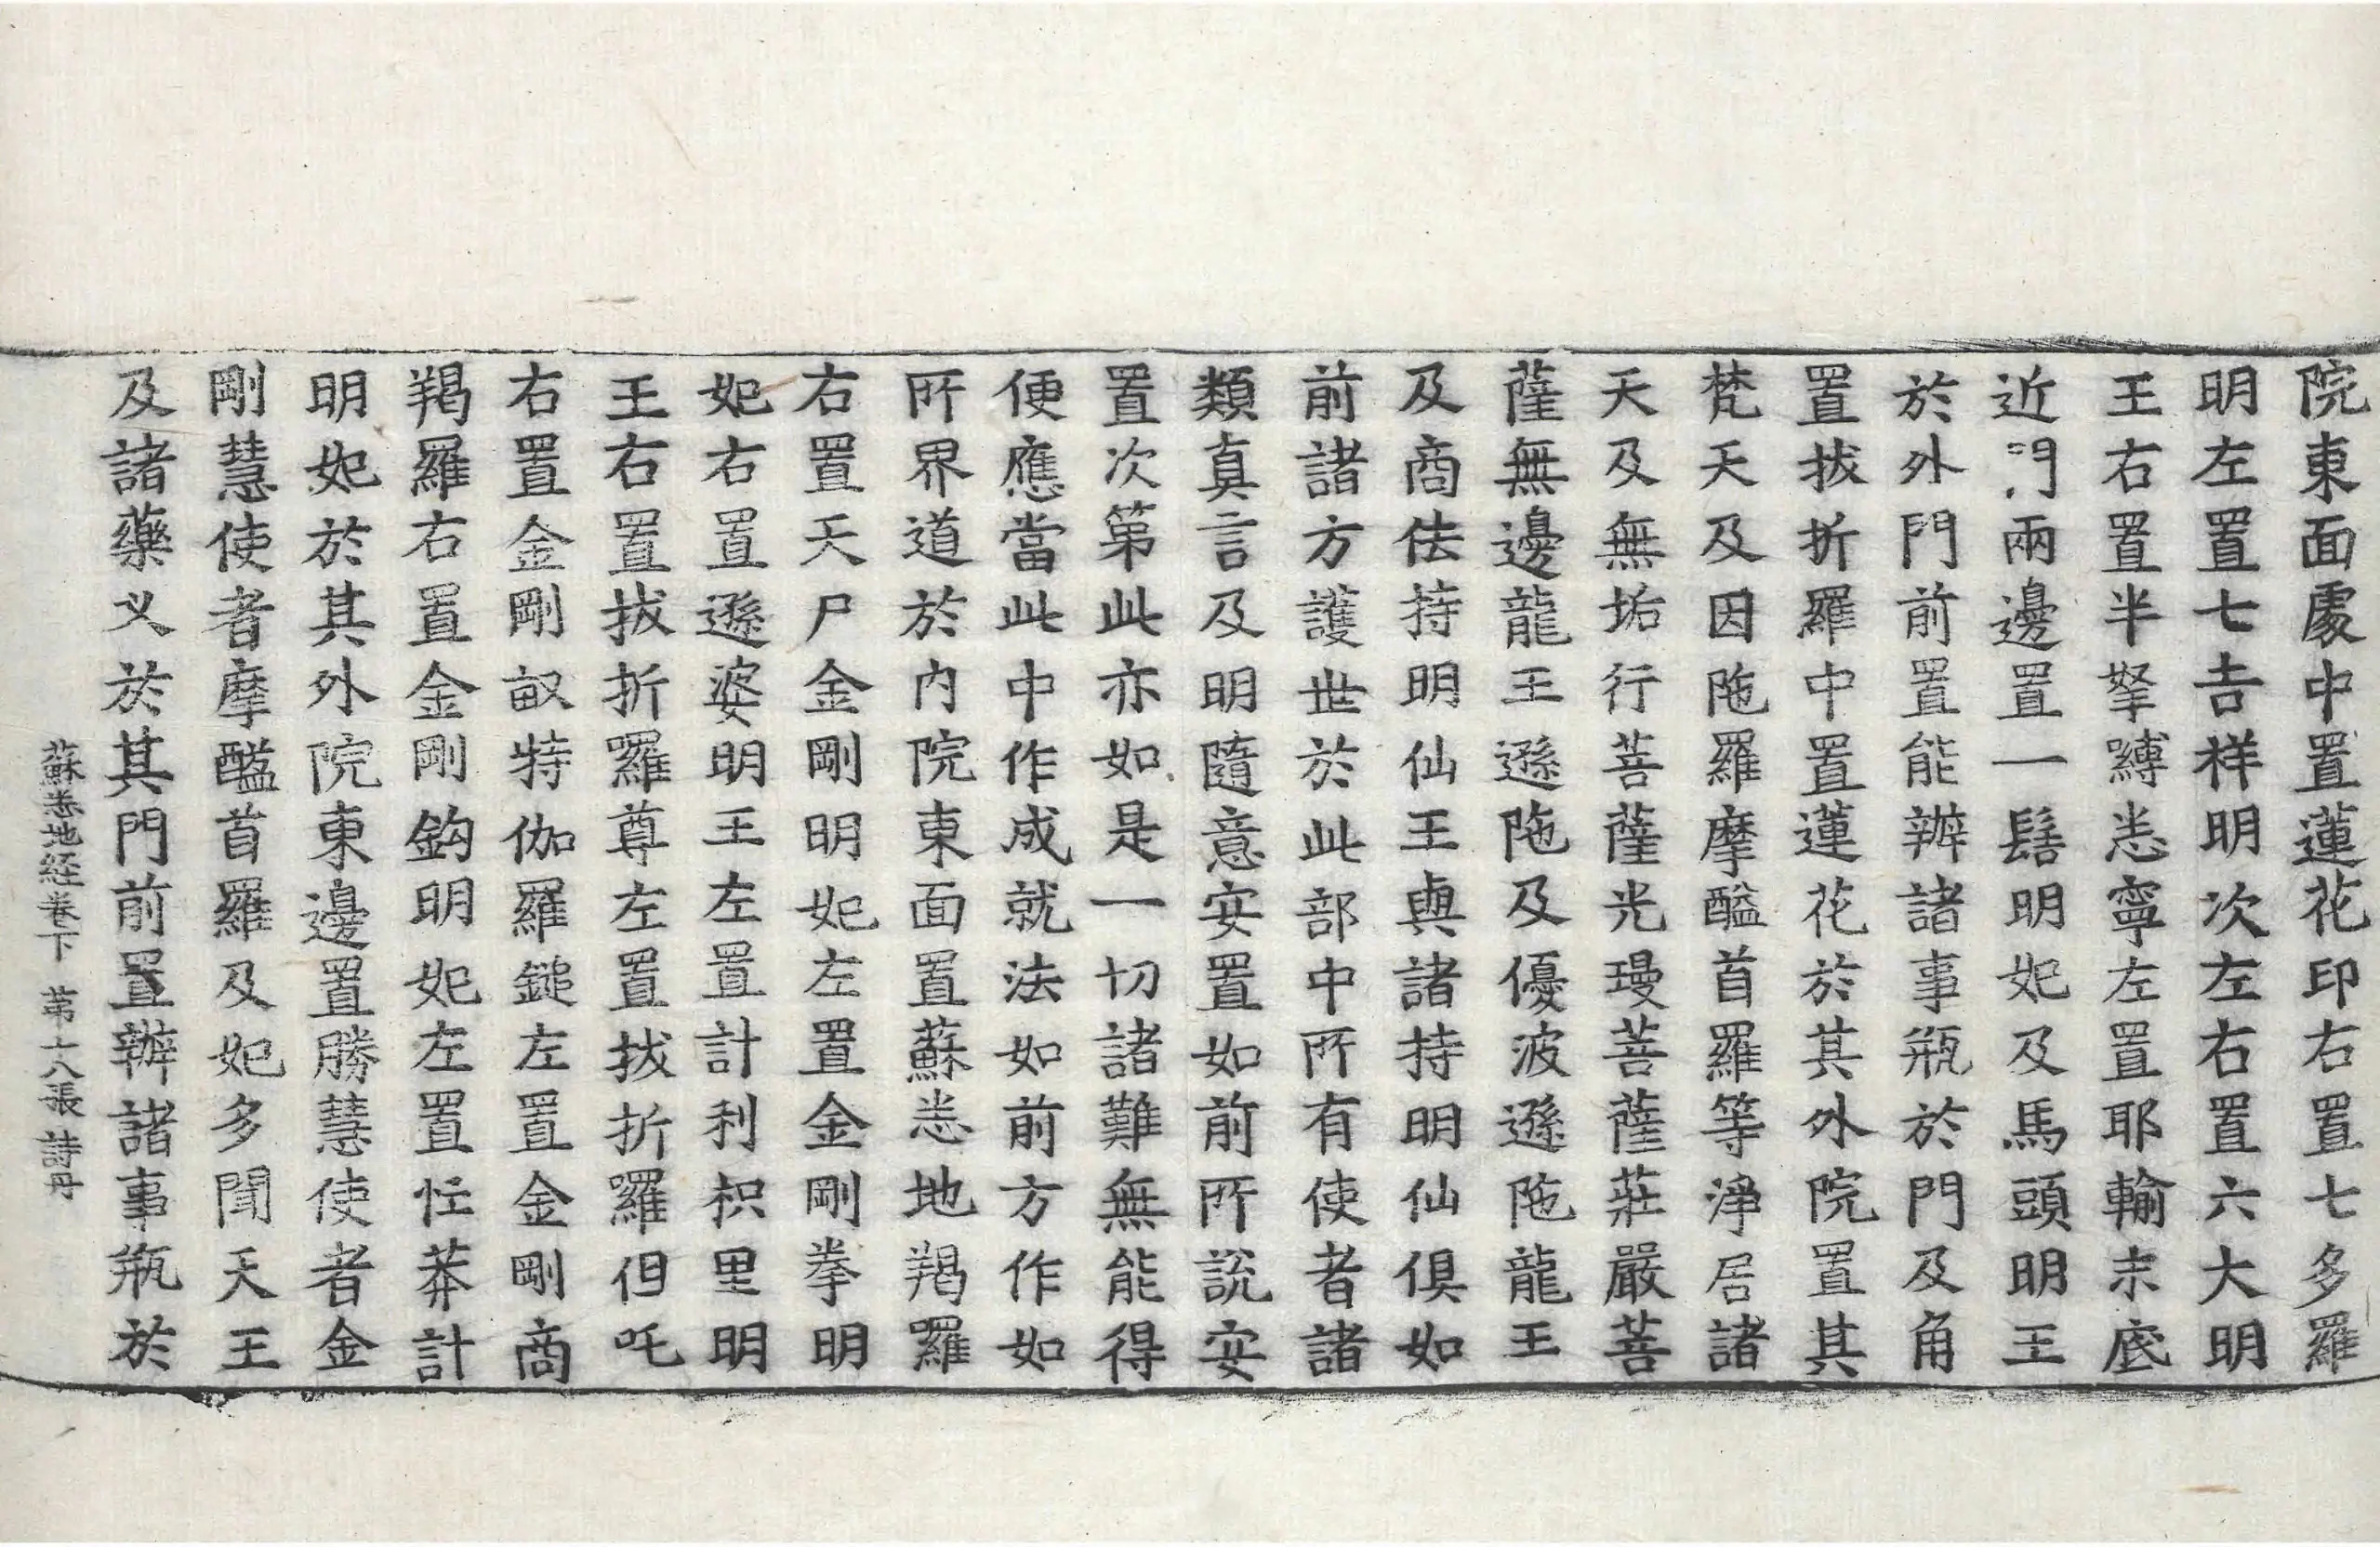 院東面處中置蓮花印右置七多羅
明左置七吉祥明次左右置六大明
王右置半拏嚩悉寧左置耶輸末底
近門兩邊置一髻明妃及馬頭明王
於外門前置能辦諸事瓶於門及角
置拔折羅中置蓮花於其外院置其
梵天及因陁羅摩醯首羅等淨居諸
天及無垢行菩薩光璟菩薩莊嚴菩
薩無邊龍王遜陁及優波遜陁龍王
及商佉持明仙王與諸持明仙俱如
前諸方護世於此部中所有使者諸
類真言及明隨意安置如前所說安
置次第此亦如是一切諸難無能得
便應當此中作成就法如前方作如
所界道於內院東面置蘇悉地羯羅
右置天尸金剛明妃左置金剛拳明
妃右置遜婆明王左置計利枳里明
王右置拔折羅尊左置拔折囉但吒
右置金剛𣫍特伽羅鎚左置金剛商
羯羅右置金剛鈎明妃左置忙莽計
明妃於其外院東邊置勝慧使者金
剛慧使者摩醯首羅及妃多聞天王
及諸藥义於其門前置辦諸事瓶於
蘇悉地経卷下 苐十八張 詩丹